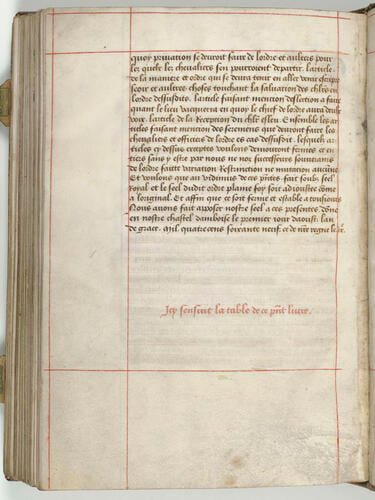 quoy priuation se deuroit faire de lordre et aultres pour
lez quelz lez cheualiers sen pourroient departir. larticle
de la maniere et ordre qui se deura tenir en aller venir
seoir et aultres choses touchant la saluation des chlrs en
lordre dessusdits. larticle faisant mention deslection a faire
quant le lieu vacquera en quoy le chief de lordre aura deux
voix. larticle de la Reception du chlr esleu. Ensemble les ar
ticles faisant mention des seremens que deuront faire les
cheualiers et officiers de lordre es cas dessusdit. lesquelz ar
ticles cy dessus exceptes voulons demourront fermes et en
tiers sans y estre par nous ne noz successeurs souuerains
de lordre faitte variation Restrinction ne mutation aucune
Et voulons que au vidimus de ces pntes fait soubz seel
Royal et le seel dudit ordre plaine foy soit adioustee come
a loriginal. Et affin que ce soit ferme et estable a tousiours
Nous auons fait apposer nostre seel a ces presentes done
en nostre chastel damboise le premier iour daoust. lan
de grace. Mil. quatre cens soixante neuf. et de nre regne le
Icy sensuit la table de ce pnt liure.